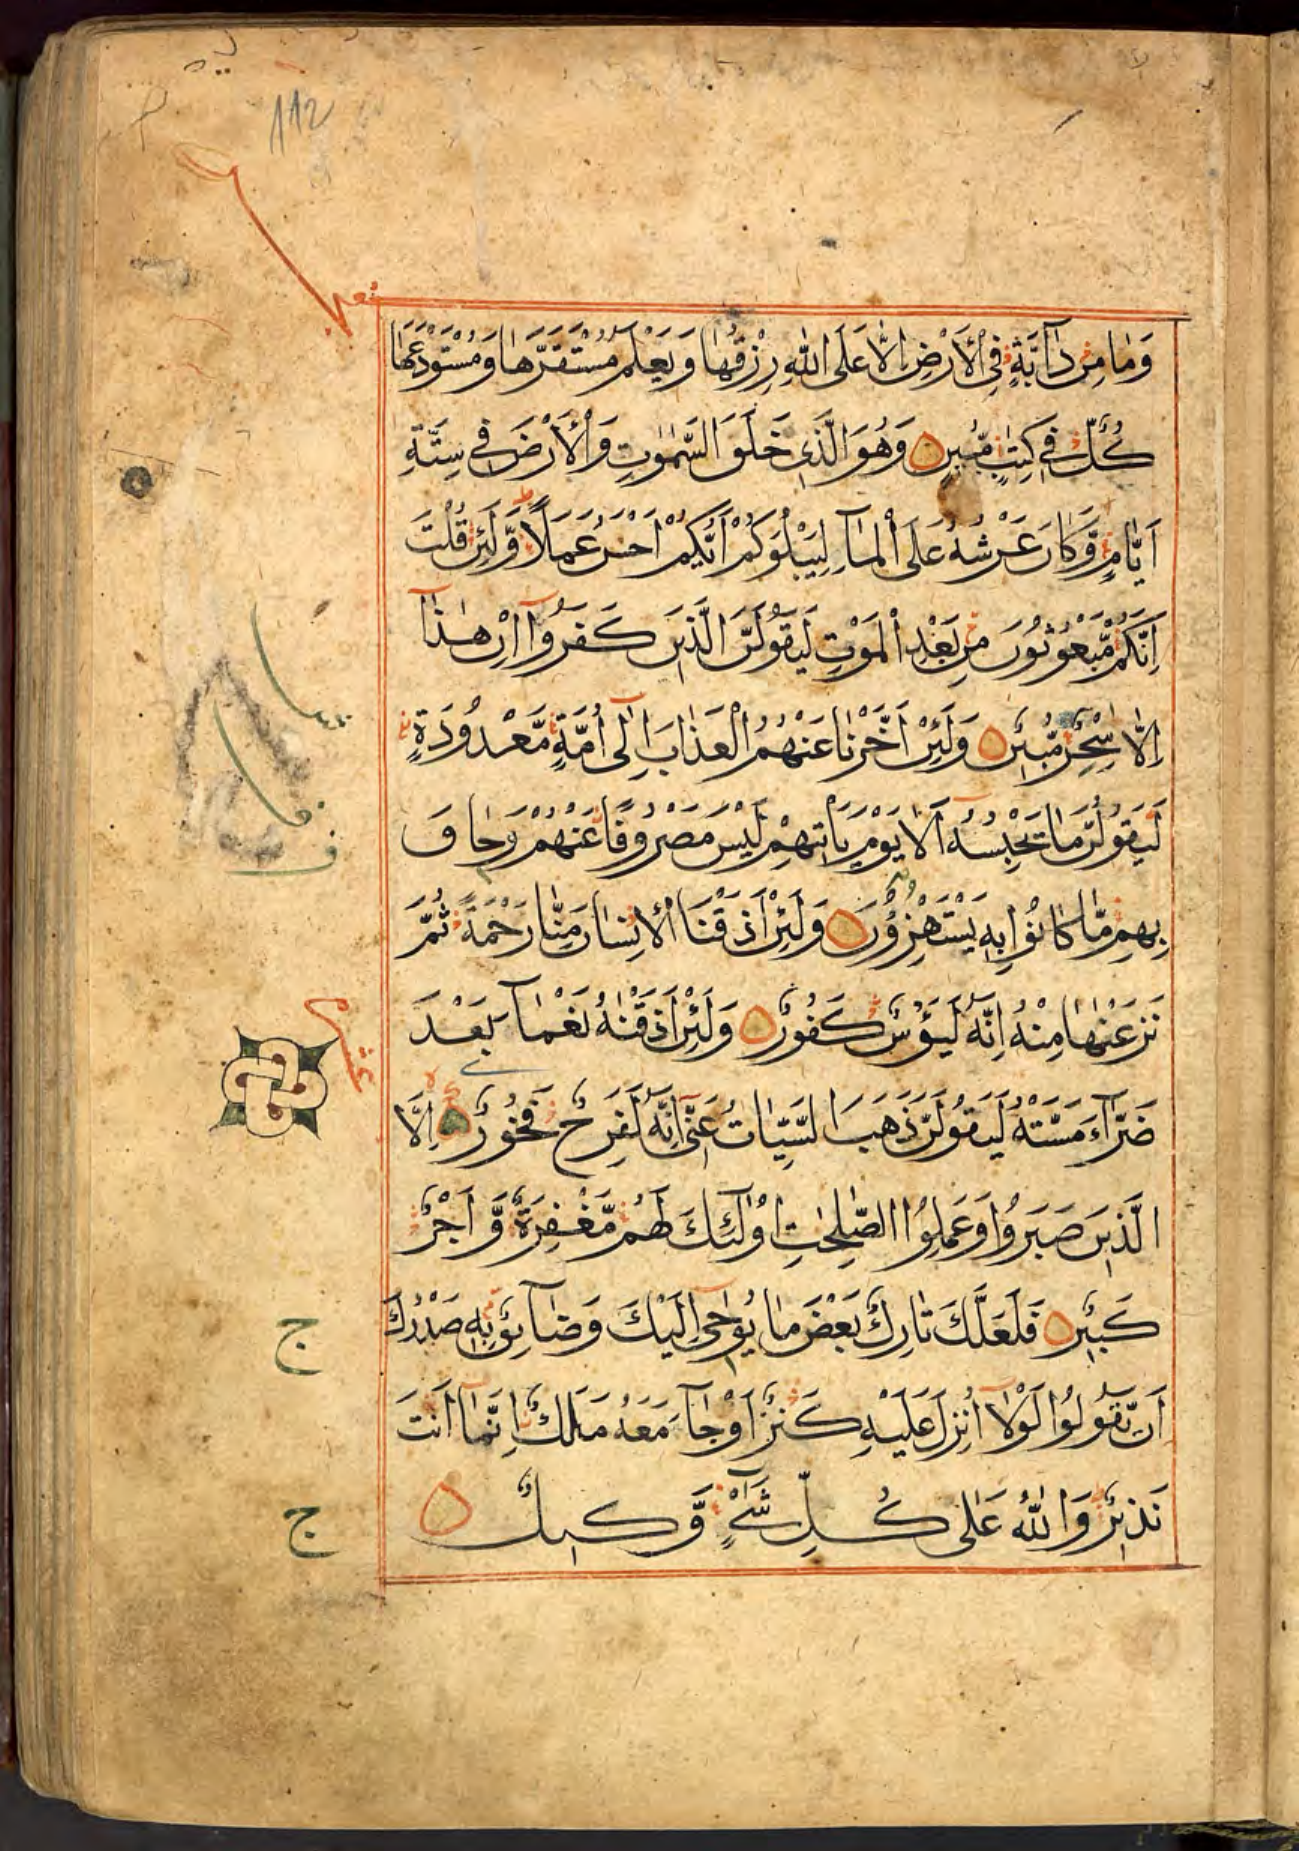 112
وَمَا مِنْ دَآبَّةٍ فِي الْأَرْضِ اِلَّا عَلَى اللّٰهِ رِزْقُهَا وَيَعْلَمُ مُسْتَقَرَّهَا وَمُسْتَوْدَعَهَا
كُلٌّ فِي كِتٰبٍ مُّبِينٍ وَهُوَ الَّذِي خَلَقَ السَّمٰوٰتِ وَالْأَرْضَ فِي سِتَّةِ
اَيَّامٍ وَّكَانَ عَرْشُهُ عَلَى الْمَآءِ لِيَبْلُوَكُمْ اَيُّكُمْ اَحْسَنُ عَمَلًا وَّلَئِنْ قُلْتَ
اِنَّكُمْ مَّبْعُوثُونَ مِنْ بَعْدِ الْمَوْتِ لَيَقُولَنَّ الَّذِينَ كَفَرُوآ اِنْ هٰذَآ
اِلَّا سِحْرٌ مُّبِينٌ وَلَئِنْ اَخَّرْنَا عَنْهُمُ الْعَذَابَ اِلٰى اُمَّةٍ مَّعْدُودَةٍ
لَيَقُولُنَّ مَا يَحْبِسُهُ اَلَا يَوْمَ يَاْتِيهِمْ لَيْسَ مَصْرُوفًا عَنْهُمْ وَحَاقَ
بِهِمْ مَّا كَانُوا بِهِ يَسْتَهْزِؤُنَ وَلَئِنْ اَذَقْنَا الْاِنْسَانَ مِنَّا رَحْمَةً ثُمَّ
نَزَعْنٰهَا مِنْهُ اِنَّهُ لَيَؤُسٌ كَفُورٌ وَلَئِنْ اَذَقْنٰهُ نَعْمَآءَ بَعْدَ
ضَرَّآءَ مَسَّتْهُ لَيَقُولَنَّ ذَهَبَ السَّيِّاٰتُ عَنِّي اِنَّهُ لَفَرِحٌ فَخُورٌ اِلَّا
الَّذِينَ صَبَرُوا وَعَمِلُوا الصّٰلِحٰتِ اُولٰٓئِكَ لَهُمْ مَّغْفِرَةٌ وَّاَجْرٌ
كَبِيرٌ فَلَعَلَّكَ تَارِكٌ بَعْضَ مَا يُوحٰى اِلَيْكَ وَضَآئِقٌ بِهِ صَدْرُكَ
اَنْ يَّقُولُوا لَوْلَا اُنْزِلَ عَلَيْهِ كَنْزٌ اَوْ جَآءَ مَعَهُ مَلَكٌ اِنَّمَآ اَنْتَ
نَذِيرٌ وَاللّٰهُ عَلٰى كُلِّ شَيْءٍ وَّكِيلٌ
عشر
ج
ج